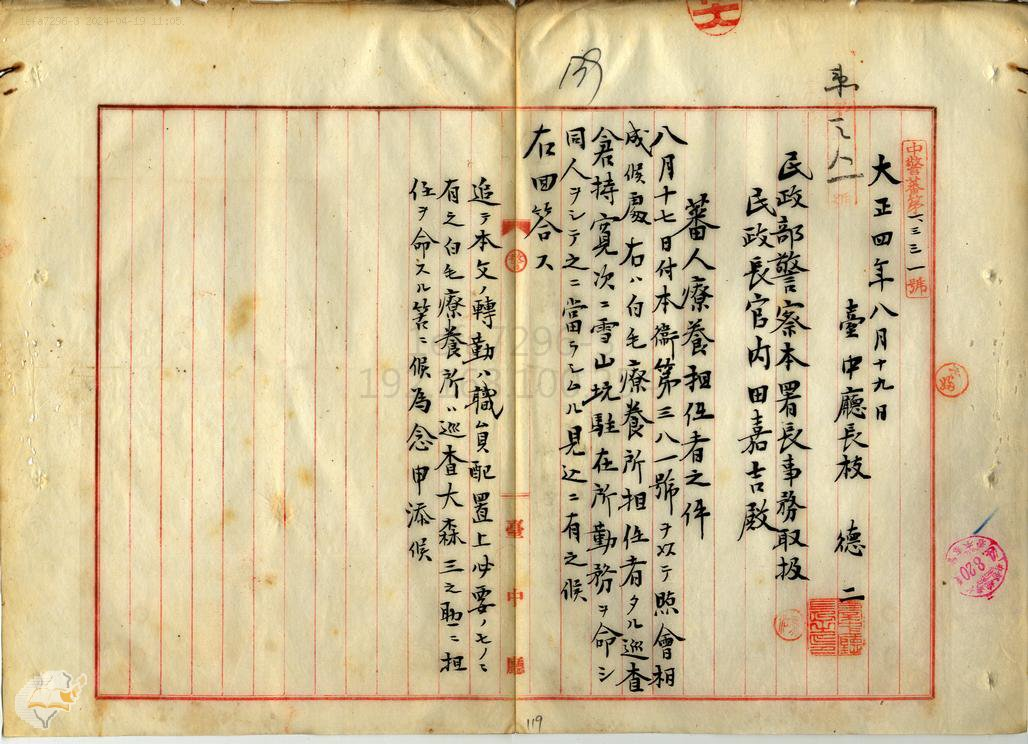 1bfa7296-3 2024-04-19 11:05
中警蕃第六三三一號
大正四年八月十九日
臺中廳長枝　德二
民政部警察本署長事務取扱
民政長官內田嘉吉殿
蕃人療養担任者之件
八月十七日付本衞第三八一號ヲ以テ照會相
成候處右ハ白毛療養所担任者タル巡査
倉持寬次ニ雪山坑駐在所勤務ヲ命シ
同人ヲシテ之ニ當ラシムル見込ニ有之候
右回答ス
追テ本文ノ轉勤ハ職員配置上必要ノモノニ
有之白毛療養所ハ巡査大森三之助ニ担
任ヲ命スル筈ニ候為念申添候
臺中廳
8.20
119